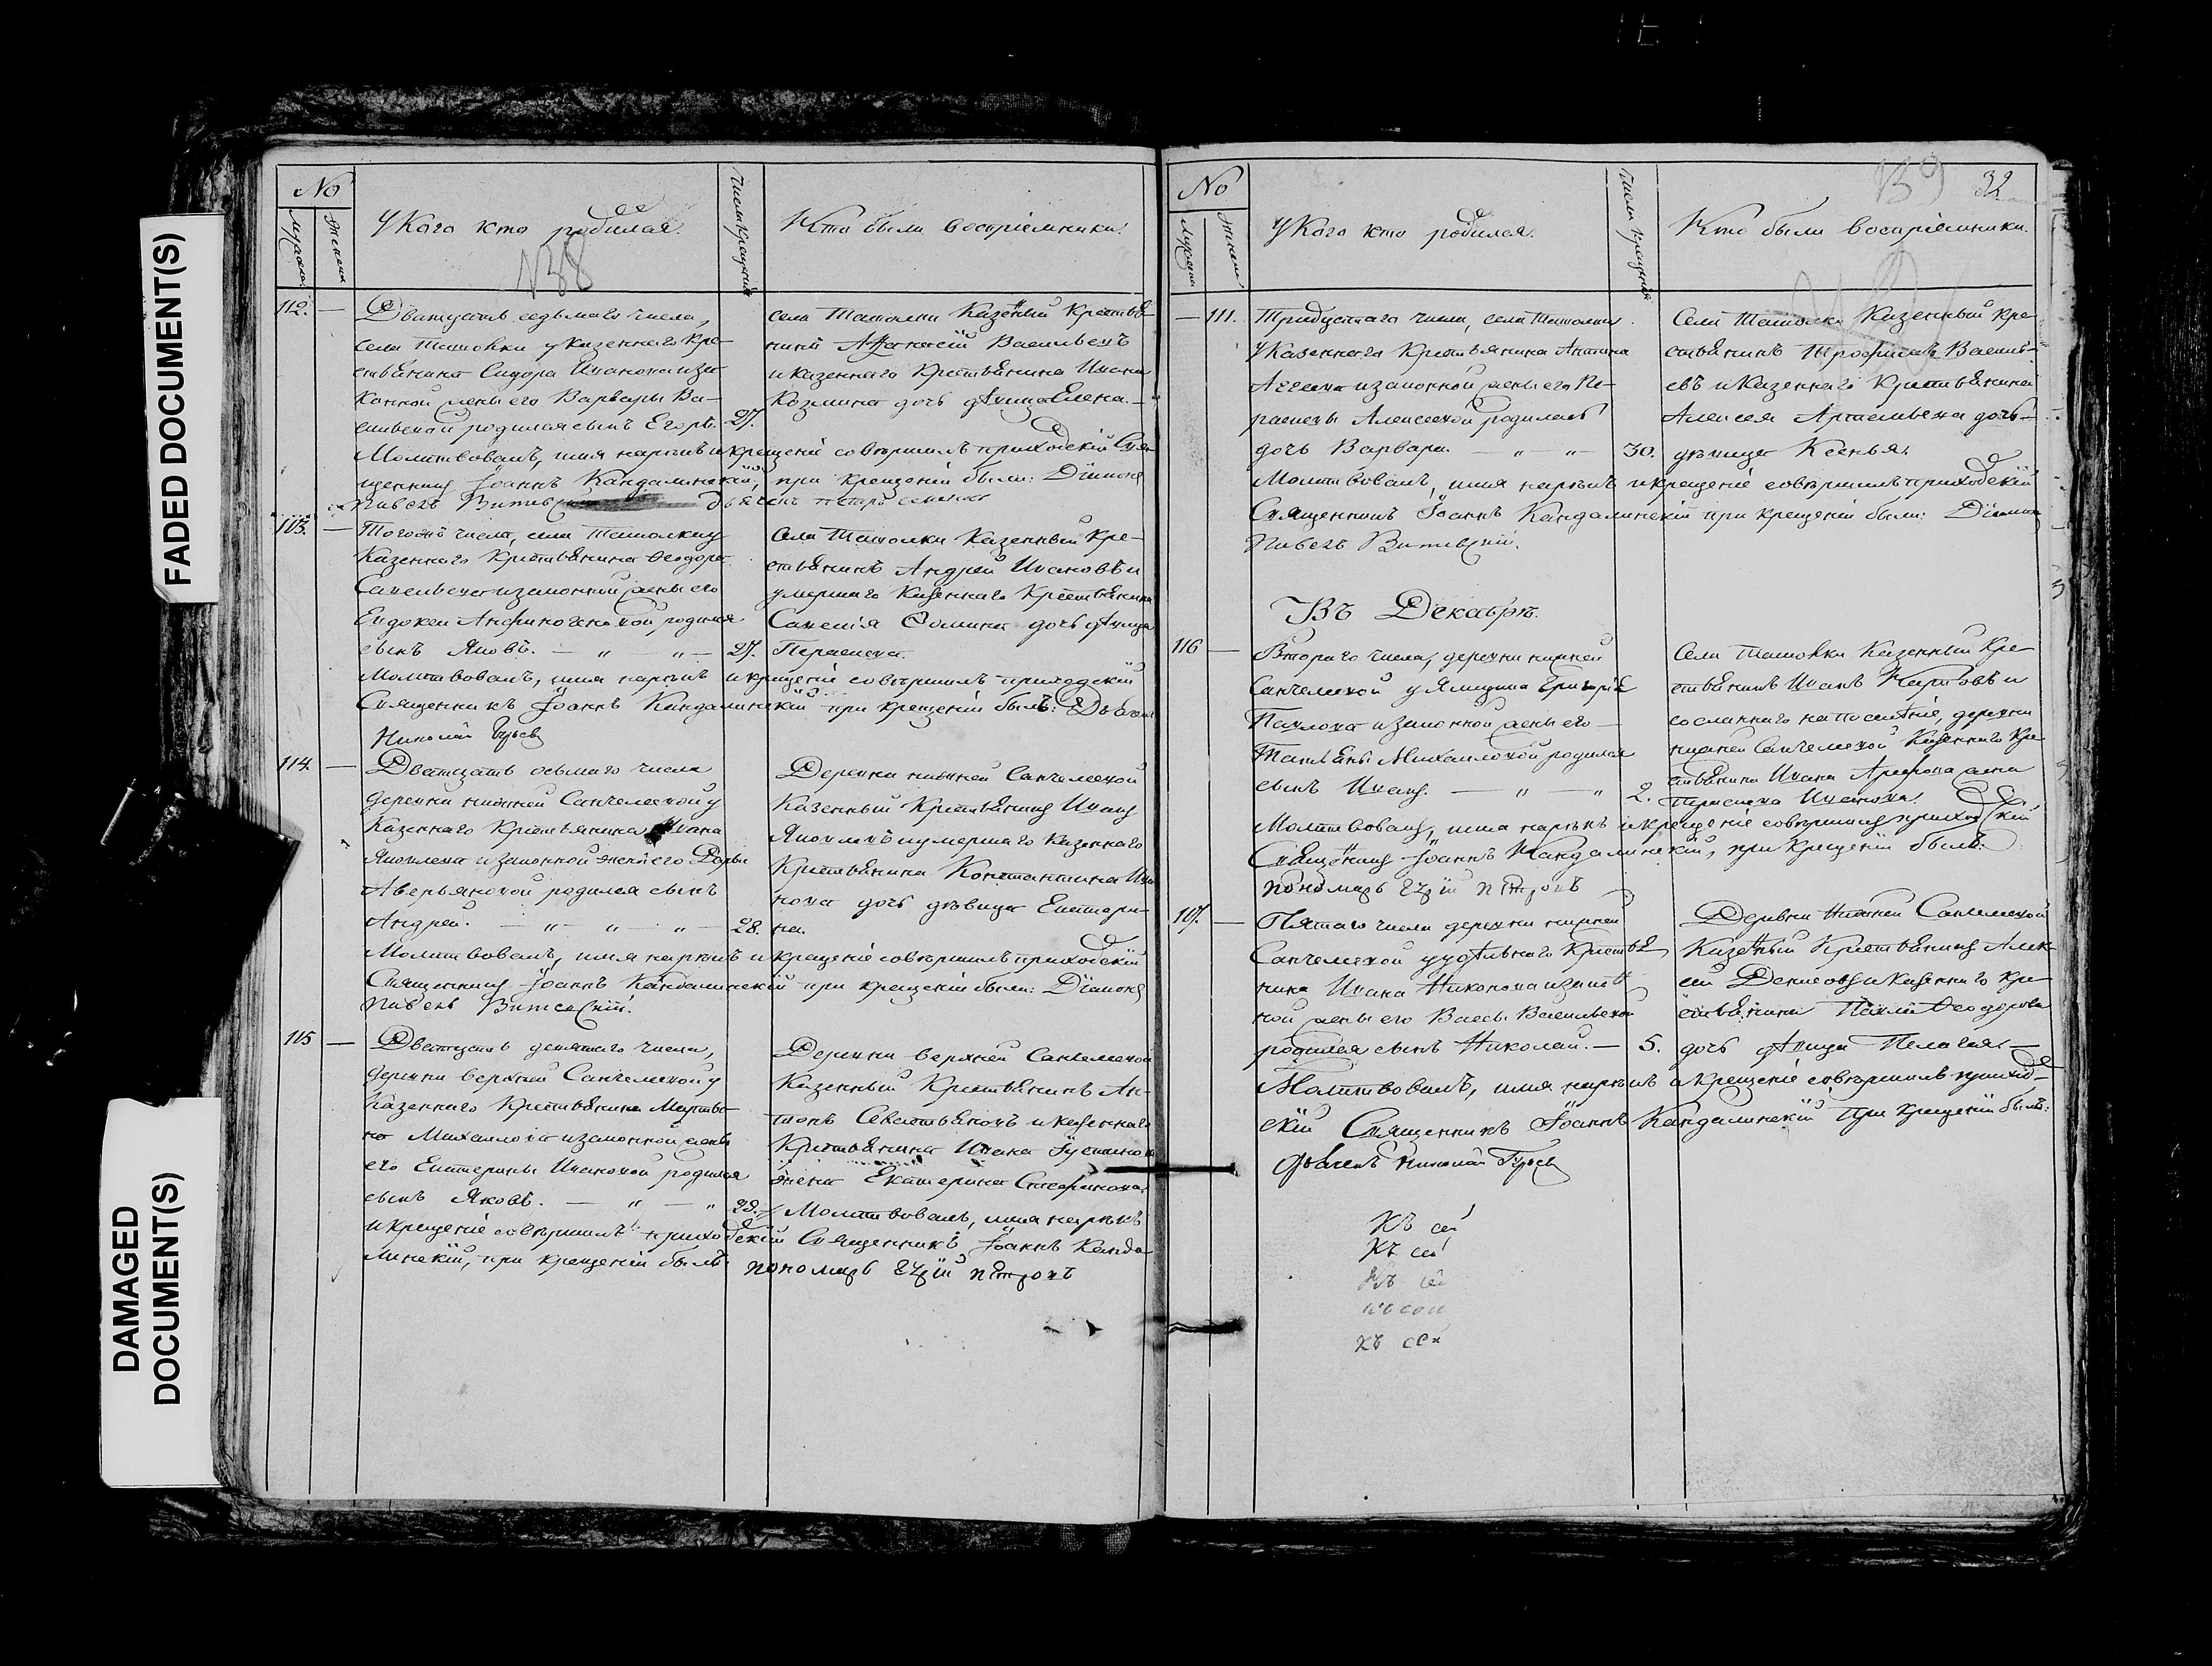 FADED DOCUMENT(S)
DAMAGED DOCUMENT(S)
№
У Кого кто родился.
138
Число Крещенія
Кто были воспріемники.
112. —
Дватцать седьмаго числа,
села Ташолки у казеннаго Кре-
стьянина Сидора Иванова и за-
конной жены его Варвары Ва-
сильевой родился сынъ Егоръ. 27.
села Ташолки Казенный Крестья-
нинъ Афанасій Васильевъ
и казеннаго Крестьянина Ивана
Козмина дочь дѣвица Елена. —
Молитвовалъ, имя нарекъ и крещеніе совершилъ приходскій Свя-
щенникъ Іоаннъ Кандалинскій, при крещеніи были: Діаконъ
Павелъ Витевскій
113. —
Тогожъ числа, села Ташолки у
Казеннаго Крестьянина Ѳеодора
Савельева и законной жены его
Евдокеи Анфиногеновой родился
сынъ Яковъ. — „ — „ — 27.
Села Ташолки Казенный Кре-
стьянинъ Андрей Ивановъ и
умершаго Казеннаго Крестьянина
Савелія Фомина дочь дѣвица
Парасковья.
Молитвовалъ, имя нарекъ и крещеніе совершилъ приходскій
Священникъ Іоаннъ Кандалинскій при крещеніи былъ: Дьячекъ
Николай Гурьевъ
114. —
Дватцать осьмаго числа
деревни нижней Санчелеевой у
Казеннаго Крестьянина Ивана
Яковлева и законной жены его Дарьи
Аверьяновой родился сынъ
Андрей. — „ — „ — „ — 28.
Деревни нижней Санчелеевой
Казенный Крестьянинъ Иванъ
Яковлевъ и умершаго Казеннаго
Крестьянина Константина Ива-
нова дочь дѣвица Екатери-
на.
Молитвовалъ, имя нарекъ и крещеніе совершилъ приходскій
Священникъ Іоаннъ Кандалинскій при крещеніи были: Діаконъ
Павелъ Витевскій.
115 —
Дватцать девятаго числа,
деревни верхней Санчелеевой у
Казеннаго Крестьянина Мартына
Михайлова и законной жены
его Екатерины Ивановой родился
сынъ Яковъ. — „ — „ 29.
Деревни верхней Санчелеевой
Казенный Крестьянинъ Ан-
тонъ Севастьяновъ и казеннаго
Крестьянина Ивана Іустинова
жена Екатерина Стефанова.
Молитвовалъ, имя нарекъ
и крещеніе совершилъ приходскій Священникъ Іоаннъ Канда-
линскій, при крещеніи былъ пономарь Егоръ Петровъ
№
У Кого кто родился.
Число Крещенія
139 32
Кто были воспріемники.
— 111.
Тридцатаго числа, села Ташолки
у Казеннаго Крестьянина Антипа
Агеева и законной жены его Па-
расковьи Алексеевой родилась
дочь Варвара. — „ — „ — 30.
Села Ташолки Казенный Кре-
стьянинъ Трофимъ Василь-
евъ и Казеннаго Крестьянина
Алексея Артемьева дочь —
дѣвица Ксенья.
Молитвовалъ, имя нарекъ и крещеніе совершилъ приходскій
Священникъ Іоаннъ Кандалинскій при крещеніи были: Діаконъ
Павелъ Витевскій.
Въ Декабрѣ.
116 —
Втораго числа, деревни нижней
Санчелеевой у Ямщика Григорія
Павлова и законной жены его —
Татьяны Михайловой родился
сынъ Иванъ. — „ — „ 2.
Села Ташолки Казенный Кре-
стьянинъ Иванъ Карповъ и
сосланнаго на поселеніе, деревни
нижней Санчелеевой Казеннаго Кре-
стьянина Ивана Арефьева жена
Парасковья Иванова.
Молитвовалъ, имя нарекъ и крещеніе совершилъ приходскій
Священникъ Іоаннъ Кандалинскій, при крещеніи былъ:
пономарь Егоръ Петровъ
117. —
Пятаго числа деревни нижней
Санчелеевой у удѣльнаго Крестья-
нина Ивана Никонова и закон-
ной жены его Васильевой
родился сынъ Николай. — 5.
Деревни Нижней Санчелеевой
Казенный Крестьянинъ Алек-
сей Денисовъ и казеннаго Кре-
стьянина Павла Ѳеодорова
дочь дѣвица Пелагея. —
Молитвовалъ, имя нарекъ и крещеніе совершилъ приход-
скій Священникъ Іоаннъ Кандалинскій при крещеніи былъ:
Дьячекъ Николай Гурьевъ
Къ сей
Къ сей
Къ сей
Къ сей
Къ сей